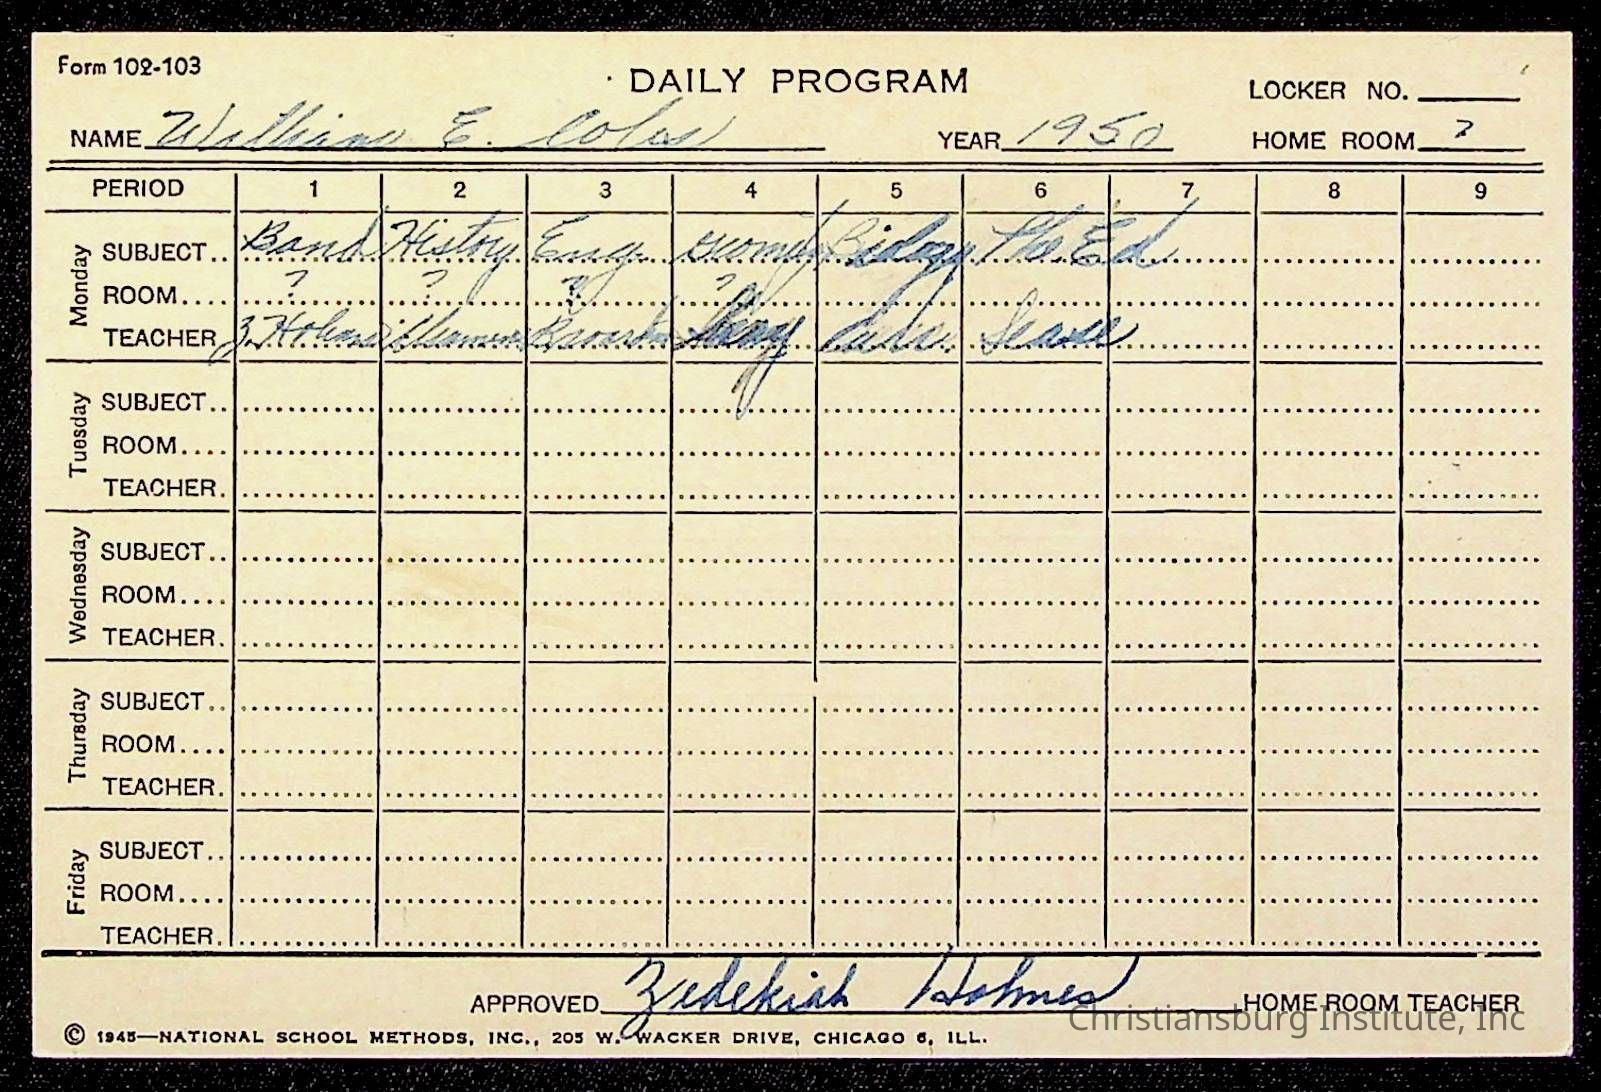 Form 102-103
DAILY PROGRAM
LOCKER NO.
NAME William E. Coles YEAR 1950 HOME ROOM ?
PERIOD 1 2 3 4 5 6 7 8 9
Monday
SUBJECT.. Band History Eng. Geometry Biology Phy. Ed
ROOM.... ? ? ? ?
TEACHER Z. Holmes Sease
Tuesday
SUBJECT..
ROOM....
TEACHER.
Wednesday
SUBJECT..
ROOM....
TEACHER.
Thursday
SUBJECT..
ROOM....
TEACHER.
Friday
SUBJECT..
ROOM....
TEACHER.
APPROVED Zedekiah Holmes HOME ROOM TEACHER
Christiansburg Institute, Inc
© 1945—NATIONAL SCHOOL METHODS, INC., 205 W. WACKER DRIVE, CHICAGO 6, ILL.